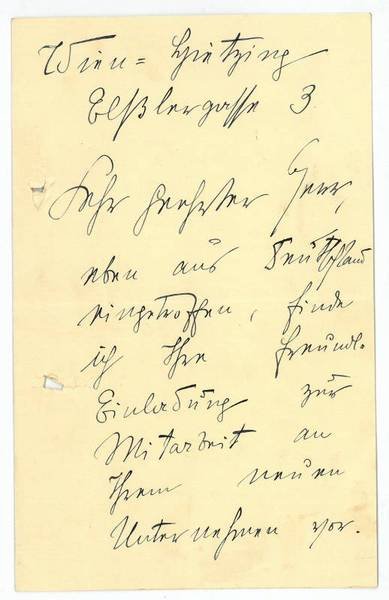 Wien-Hietzing
Elßlergasse 3
Sehr geehrter Herr,
eben aus Deutschland
eingetroffen, finde
ich Ihre freundl.
Einladung zur
Mitarbeit an
Ihrem neuen
Unternehmen vor.